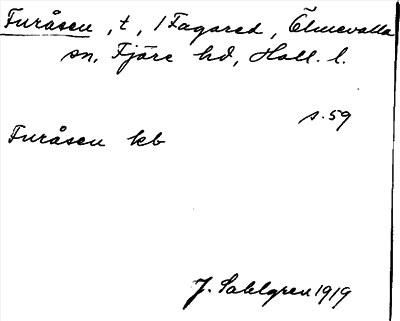 Furåsen, t, /Fagared, Ölmevalla
sn, Fjäre hd, Hall. l.
s. 59
Furåsen kb
J. Sahlgren 1919